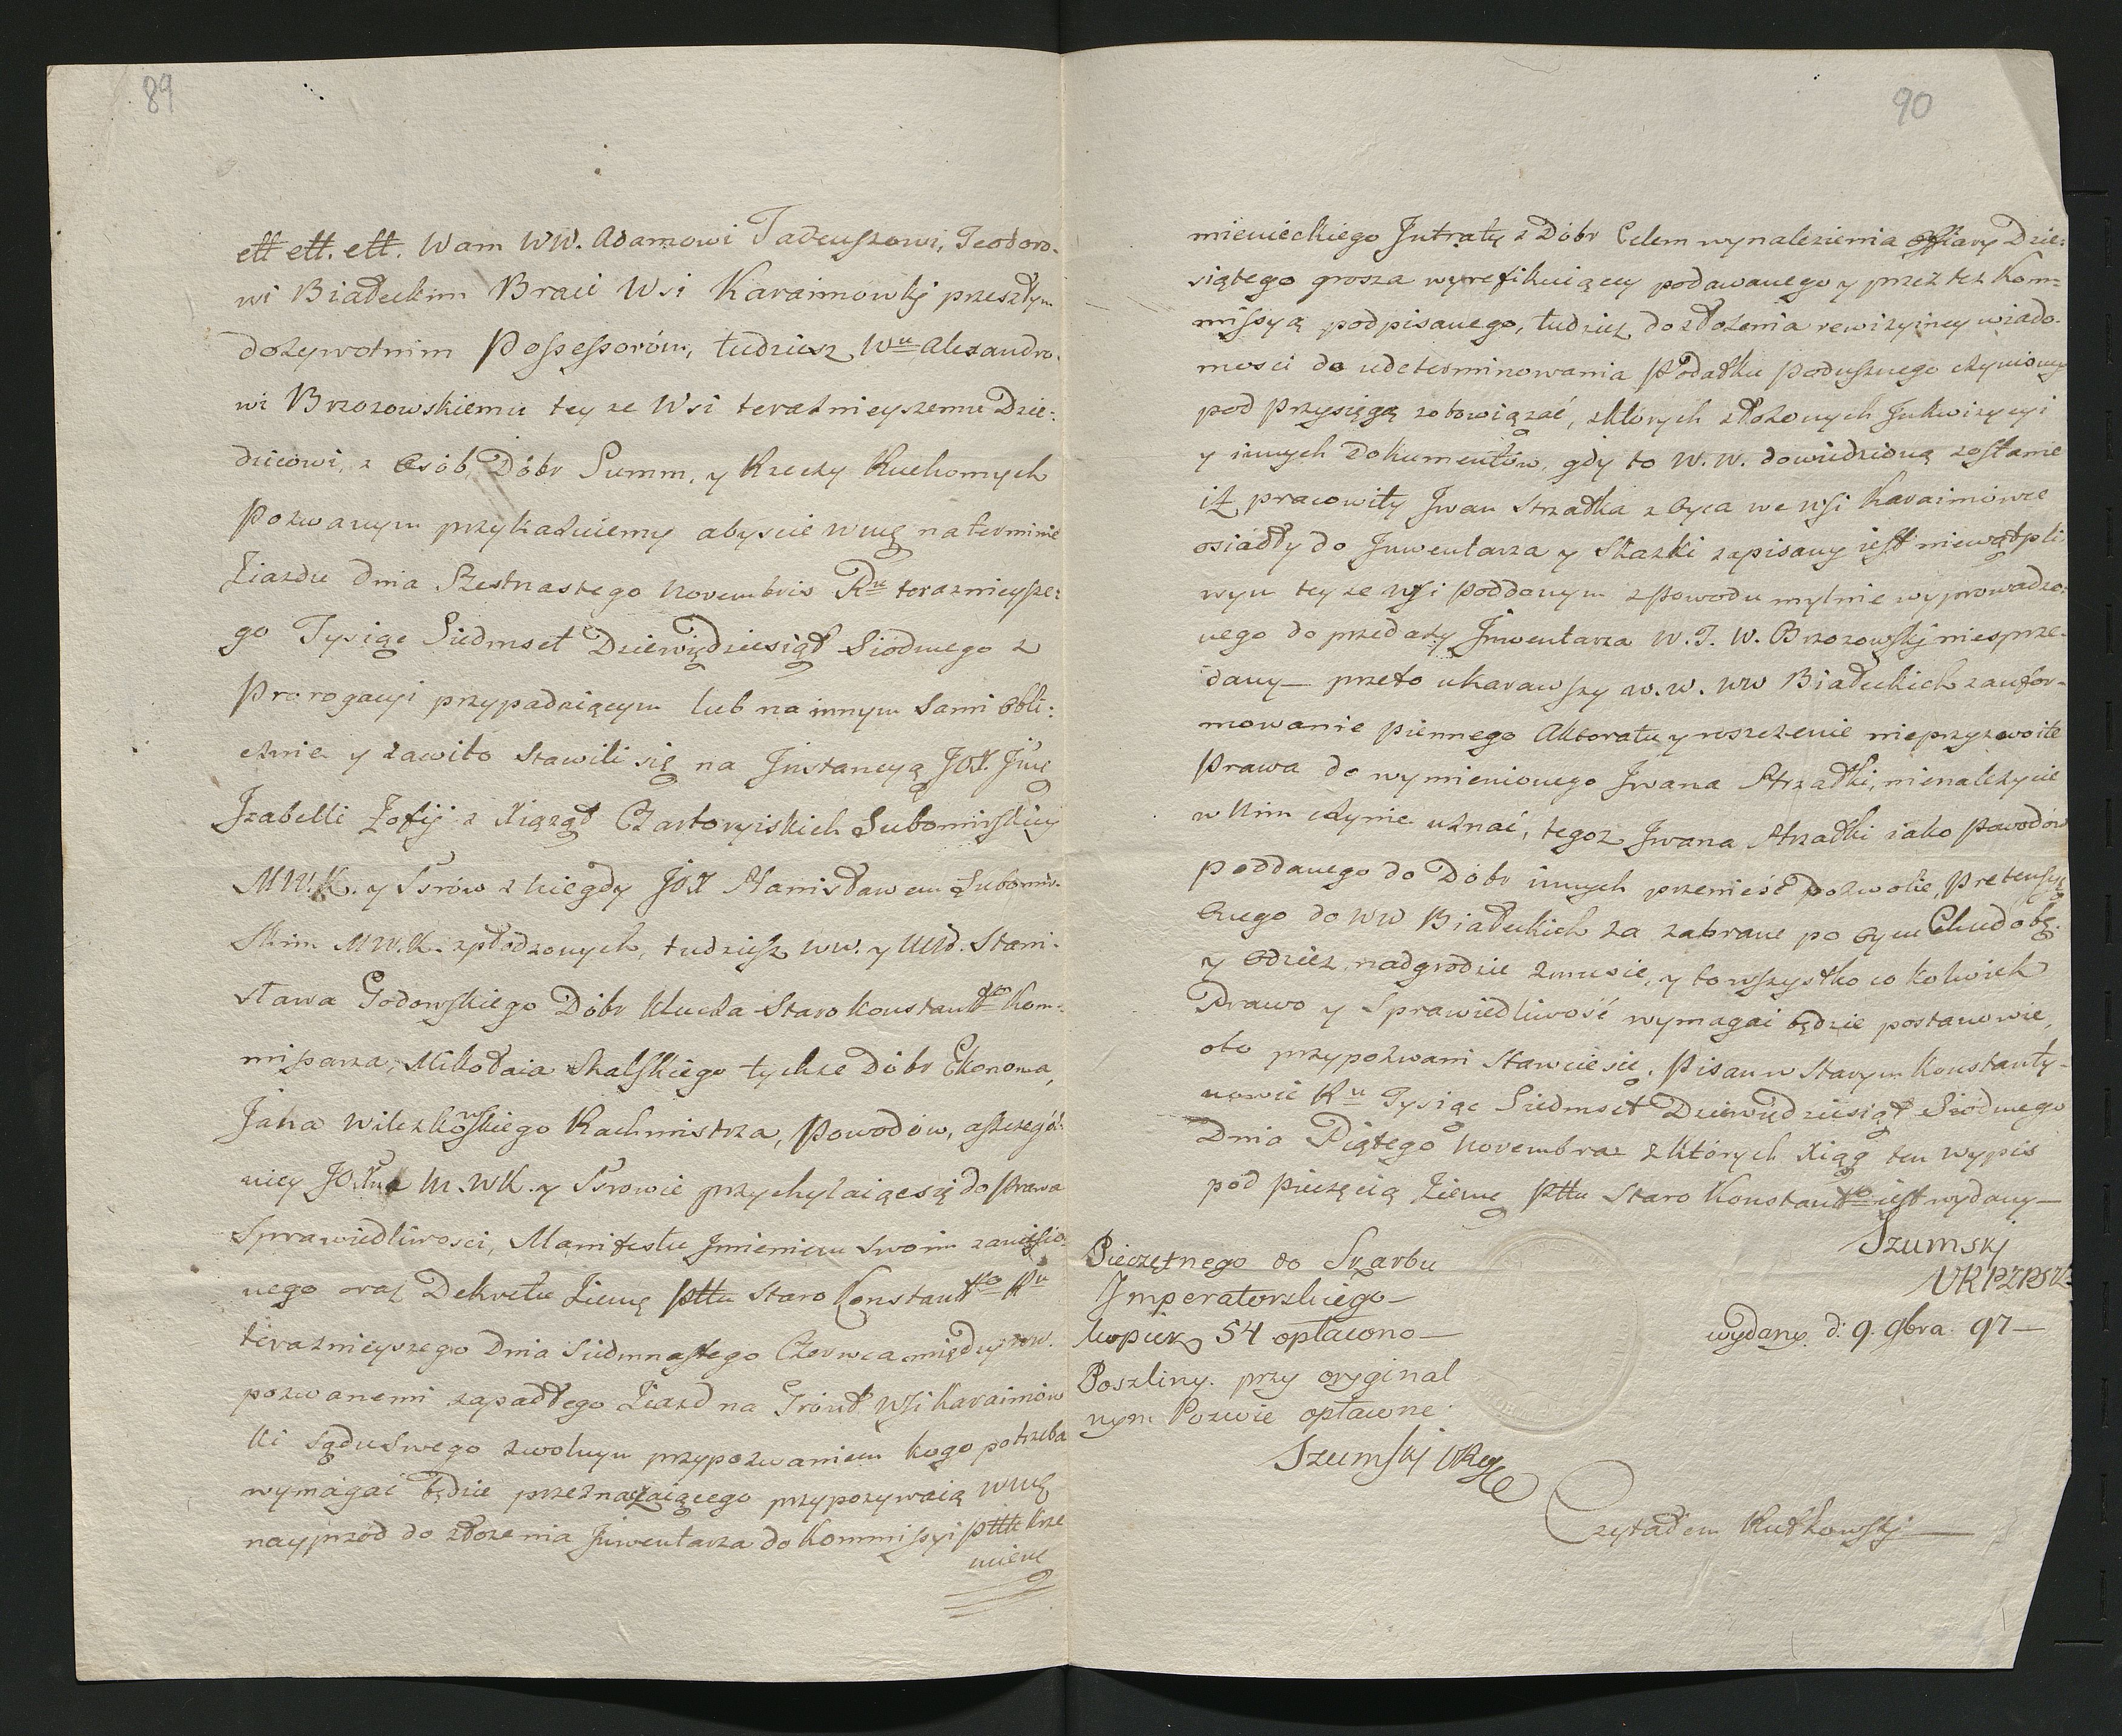 89
ett ett. ett. Wam WW. Adamowi Tadeuszowi, Teodoro-
wi Białeckim Braci Wsi Karaimowkj przeszłym
dożywotnim Possessorów, tudziesz Wu Alexandro-
wi Brzozowskiemu tey ze Wsi teraznieyszemu Dzie:
dzicowi, z Osób, Dóbr Summ, y Rzeczy Ruchomych
Pozwanym przykazuiemy abyscie WMę na terminie
Ziazdu dnia Szesnastego Novembris Ru teraznieysze:
go Tysiąc Siedmset Dziewiędziesiąt Siodmego z
Prorogacyi przypadaiącym lub na innym sami obli:
cznie y zawito stawili się na Jnstancyą JOX. Jmę
Jzabelli Zofij z Xiążąt Czartoryiskich Lubomirskiey
MW.K. y Ssrów z niegdy JOX Stanisławem Lubomir-
skim MW.K. zpłodzonych, tudziesz ww. y Urd. Stani-
sława Godowskiego Dóbr Klucza Staro Konstantgo Kom-
missarza, Mikołaia Skalskiego tychże Dóbr Ekonoma,
Jana Wilczkowskiego Rachmistrza, Powodów, aszczegól:
niey JOXna M.WK. y Ssrowie przychylaiącesię do Prawa
Sprawiedliwosci, Manifestu Jmieniem swoim zaniesio-
nego oraz Dekretu Ziemę Pttu Staro Konstantgo Ru
teraznieyszego Dnia Siedmnastego Czerwca między ww.
pozwanemi zapadłego Ziazd na Grunt Wsi Karaimów
ki sądu swego zwolnym przypozwaniem kogo potrzeba
wymagać będzie przeznaczaiącego przypozywaią WMę
nayprzód do złożenia Jnwentarza do Kommissyi Pttu Krze
mienę
90
mienieckiego Jntraty z Dóbr Celem wynalezienia offiary Dzie:
siątego grosza wyrefikuiący podawanego y przez tez Kom=
missyą podpisanego, tudziez do złożenia rewizyiney wiado-
mosci do udeterminowania Podatku Podusznego czynioney
pod Przysięgą zobowiązać, zktórych złożonych Jnkwizycyi
y innych Dokumentów, gdy to W.W. dowiedzioną zostanie
iż pracowity Jwan Strzałka z Oyca we Wsi Karaimówce
osiadły do Jnwentarza y Skazki zapisany iest niewątpli
wym tey ze Wsi Poddanym z Powodu mylnie wyprowadzo:
nego do przedaży Jnwentarza W.J.W. Brzozowskj niesprze-
dany — przeto ukarawszy w.w. WW Białeckich zaufor-
mowanie piennego Aktoratu y roszczenie nieprzyzwoite
Prawa do wymienionego Jwana Strzałki, nienależycie
w Nim czynie uznać, tegoz Jwana Strzałki iako Powodów
Poddanego do Dóbr innych przenieść pozwolic, Pretensyę
Onego do WW Białeckich za zabrane po Oycu Chudobę
y Odziez, nadgrodzic zmusic, y to wszystko co kolwiek
Prawo y Sprawiedliwość wymagai będzie postanowic,
oto przypozwani Stawciesię. Pisan w Starym Konstanty-
nowie Ru Tysiąc Siedmset Dziewiędziesiąt Siódmego
Dnia Piątego Novembra z których Xiąg ten wypis
pod Pieczęcią Ziemę Pttu Staro Konstantgo iest wydany —
Szumskj
Pieczętnego do Skarbu
Jmperatorskiego —
kopiek 54 opłacono —
wydany. d: 9. 9bra. 97 —
Poszliny. przy oryginal
nym Pozwie opłacone.
Szumskj VReg
Czytałem Rutkowskj —